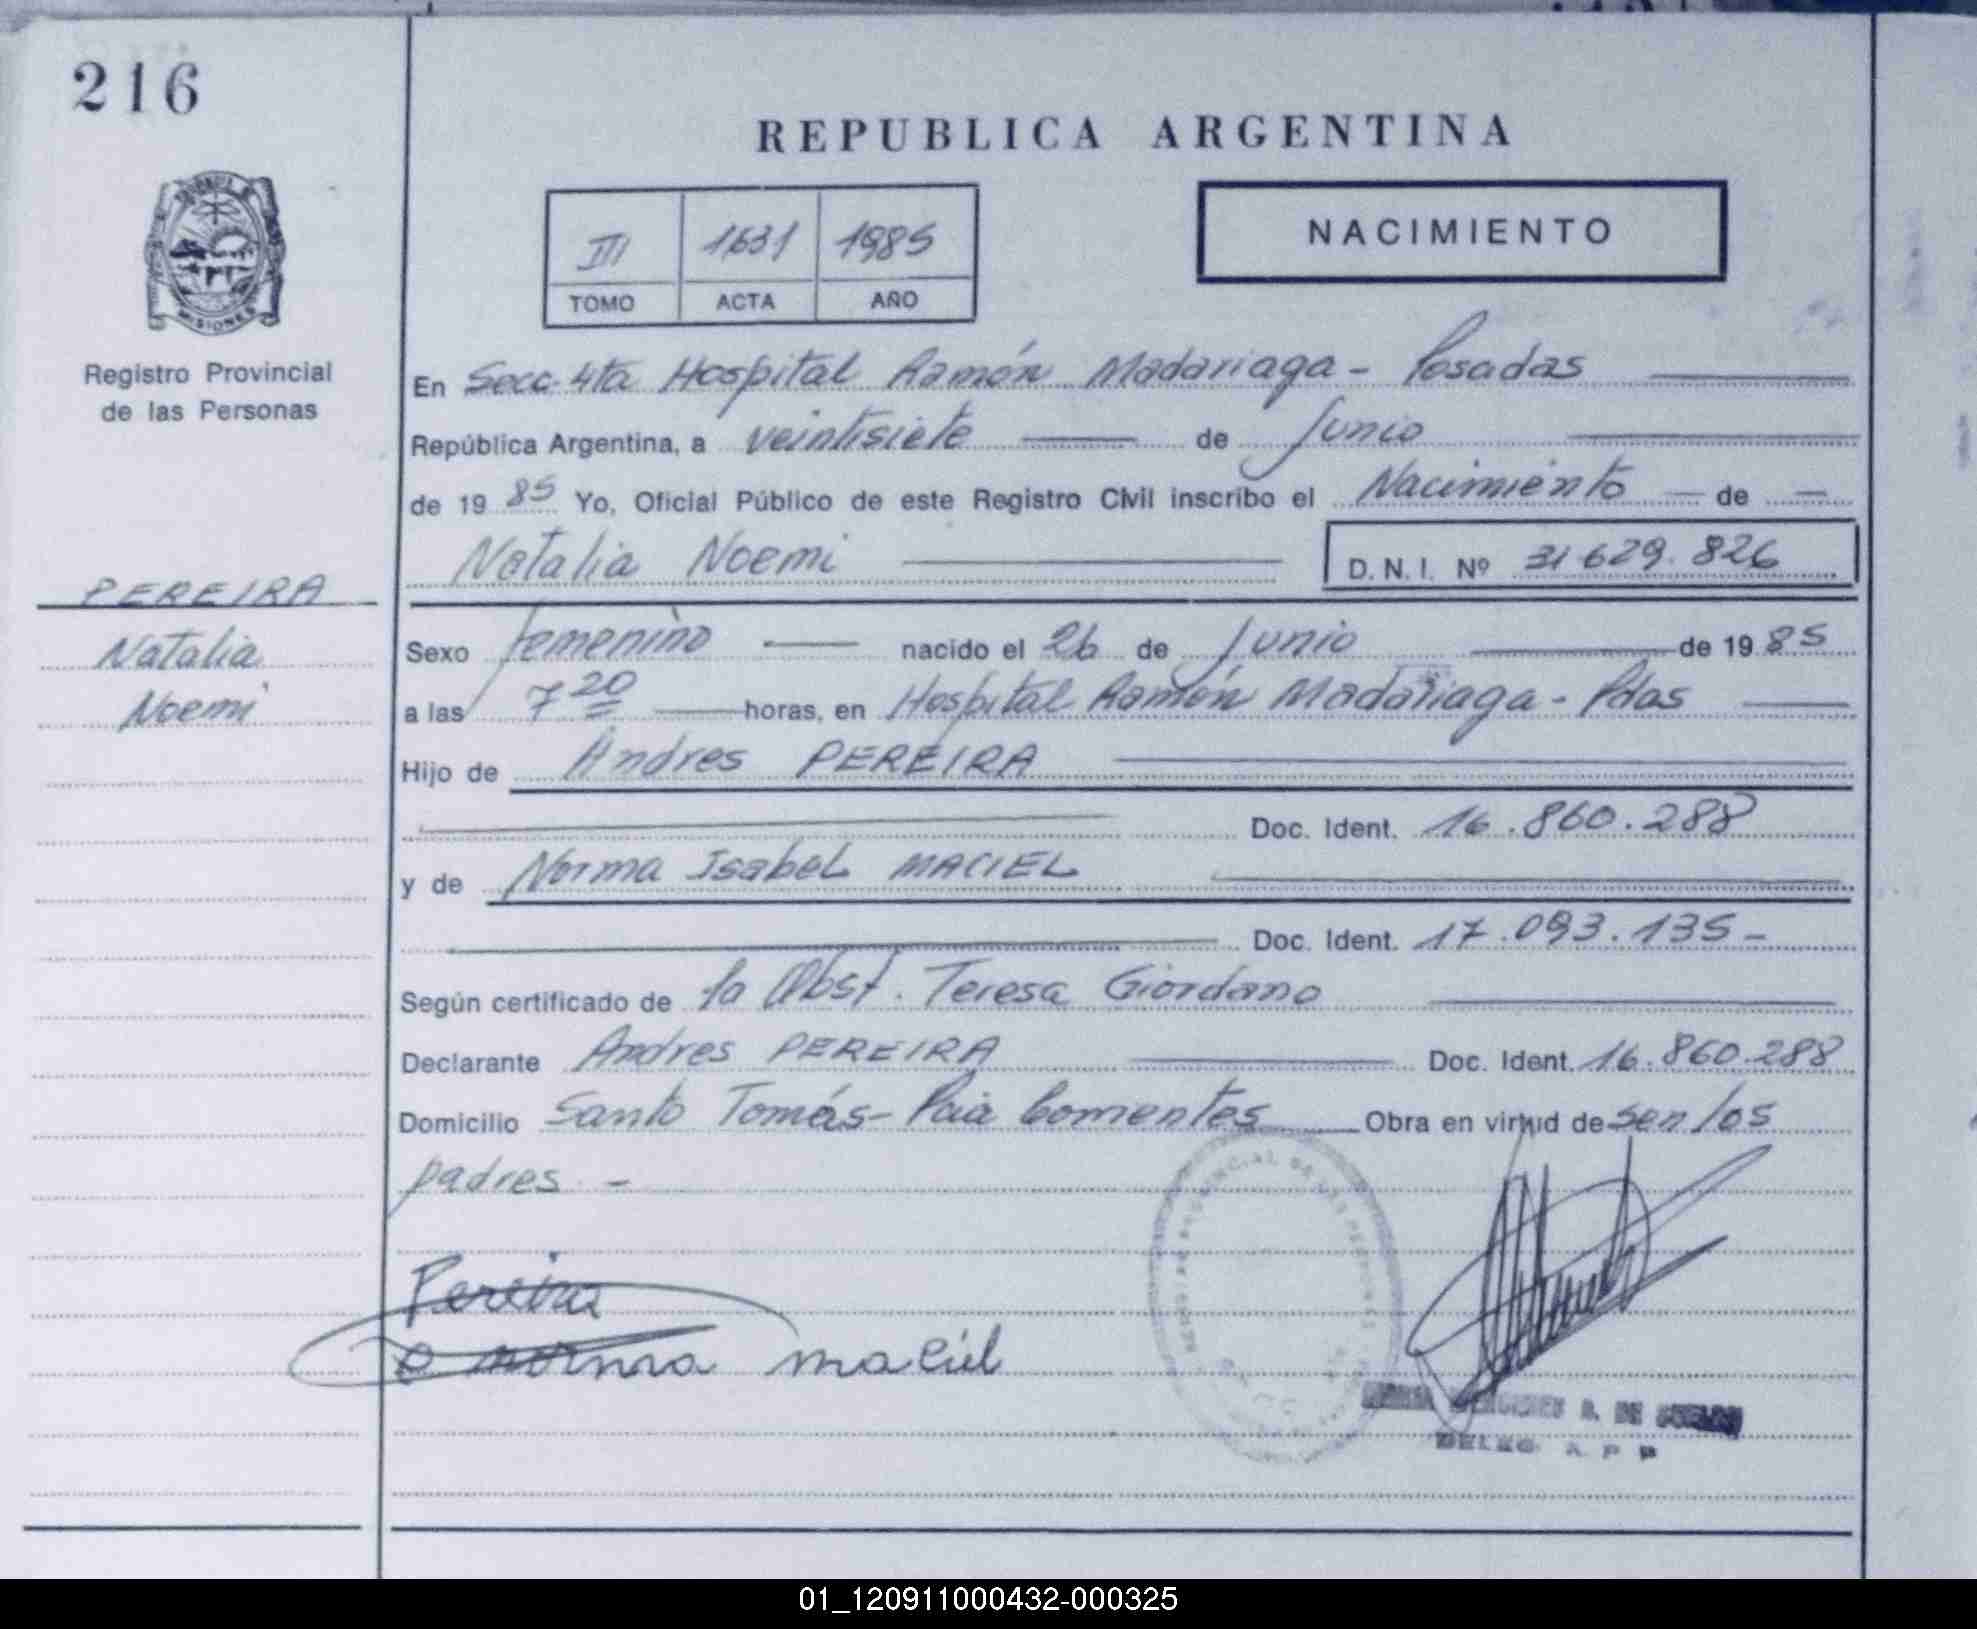 216
REPUBLICA ARGENTINA
MISIONES
Registro Provincial
de las Personas
III 1631 1985
TOMO ACTA AÑO
NACIMIENTO
En Secc. 4ta Hospital Ramón Madariaga - Posadas
República Argentina, a veintisiete de Junio
de 1985 Yo, Oficial Público de este Registro Civil inscribo el Nacimiento de
Natalia Noemi D.N.I. Nº 31 629.826
PEREIRA
Natalia
Noemi
Sexo femenino nacido el 26 de Junio de 1985
a las 7 20 horas, en Hospital Ramón Madariaga - Pdas
Hijo de Andres PEREIRA
Doc. Ident. 16.860.288
y de Norma Isabel MACIEL
Doc. Ident. 17.093.135-
Según certificado de la Obst. Teresa Giordano
Declarante Andres PEREIRA Doc. Ident. 16.860.288
Domicilio Santo Tomás - Pcia Corrientes Obra en virtud de ser los
padres -
Pereira
norma maciel
DE
DELEG. R. P. P
01_120911000432-000325